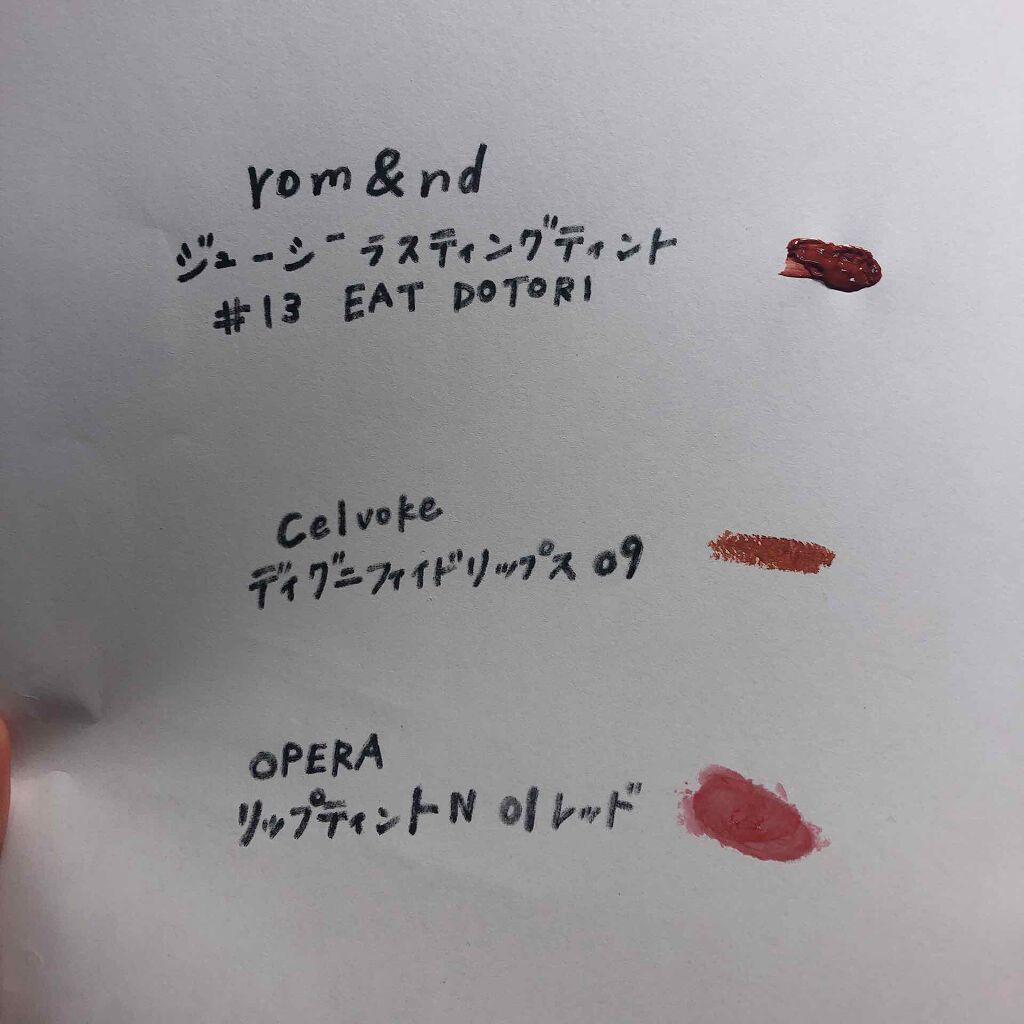 rom&nd
ジューシーラスティングティント
#13 EAT DOTORI
Celvoke
ディグニファイドリップス 09
OPERA
リップティントN 01 レッド